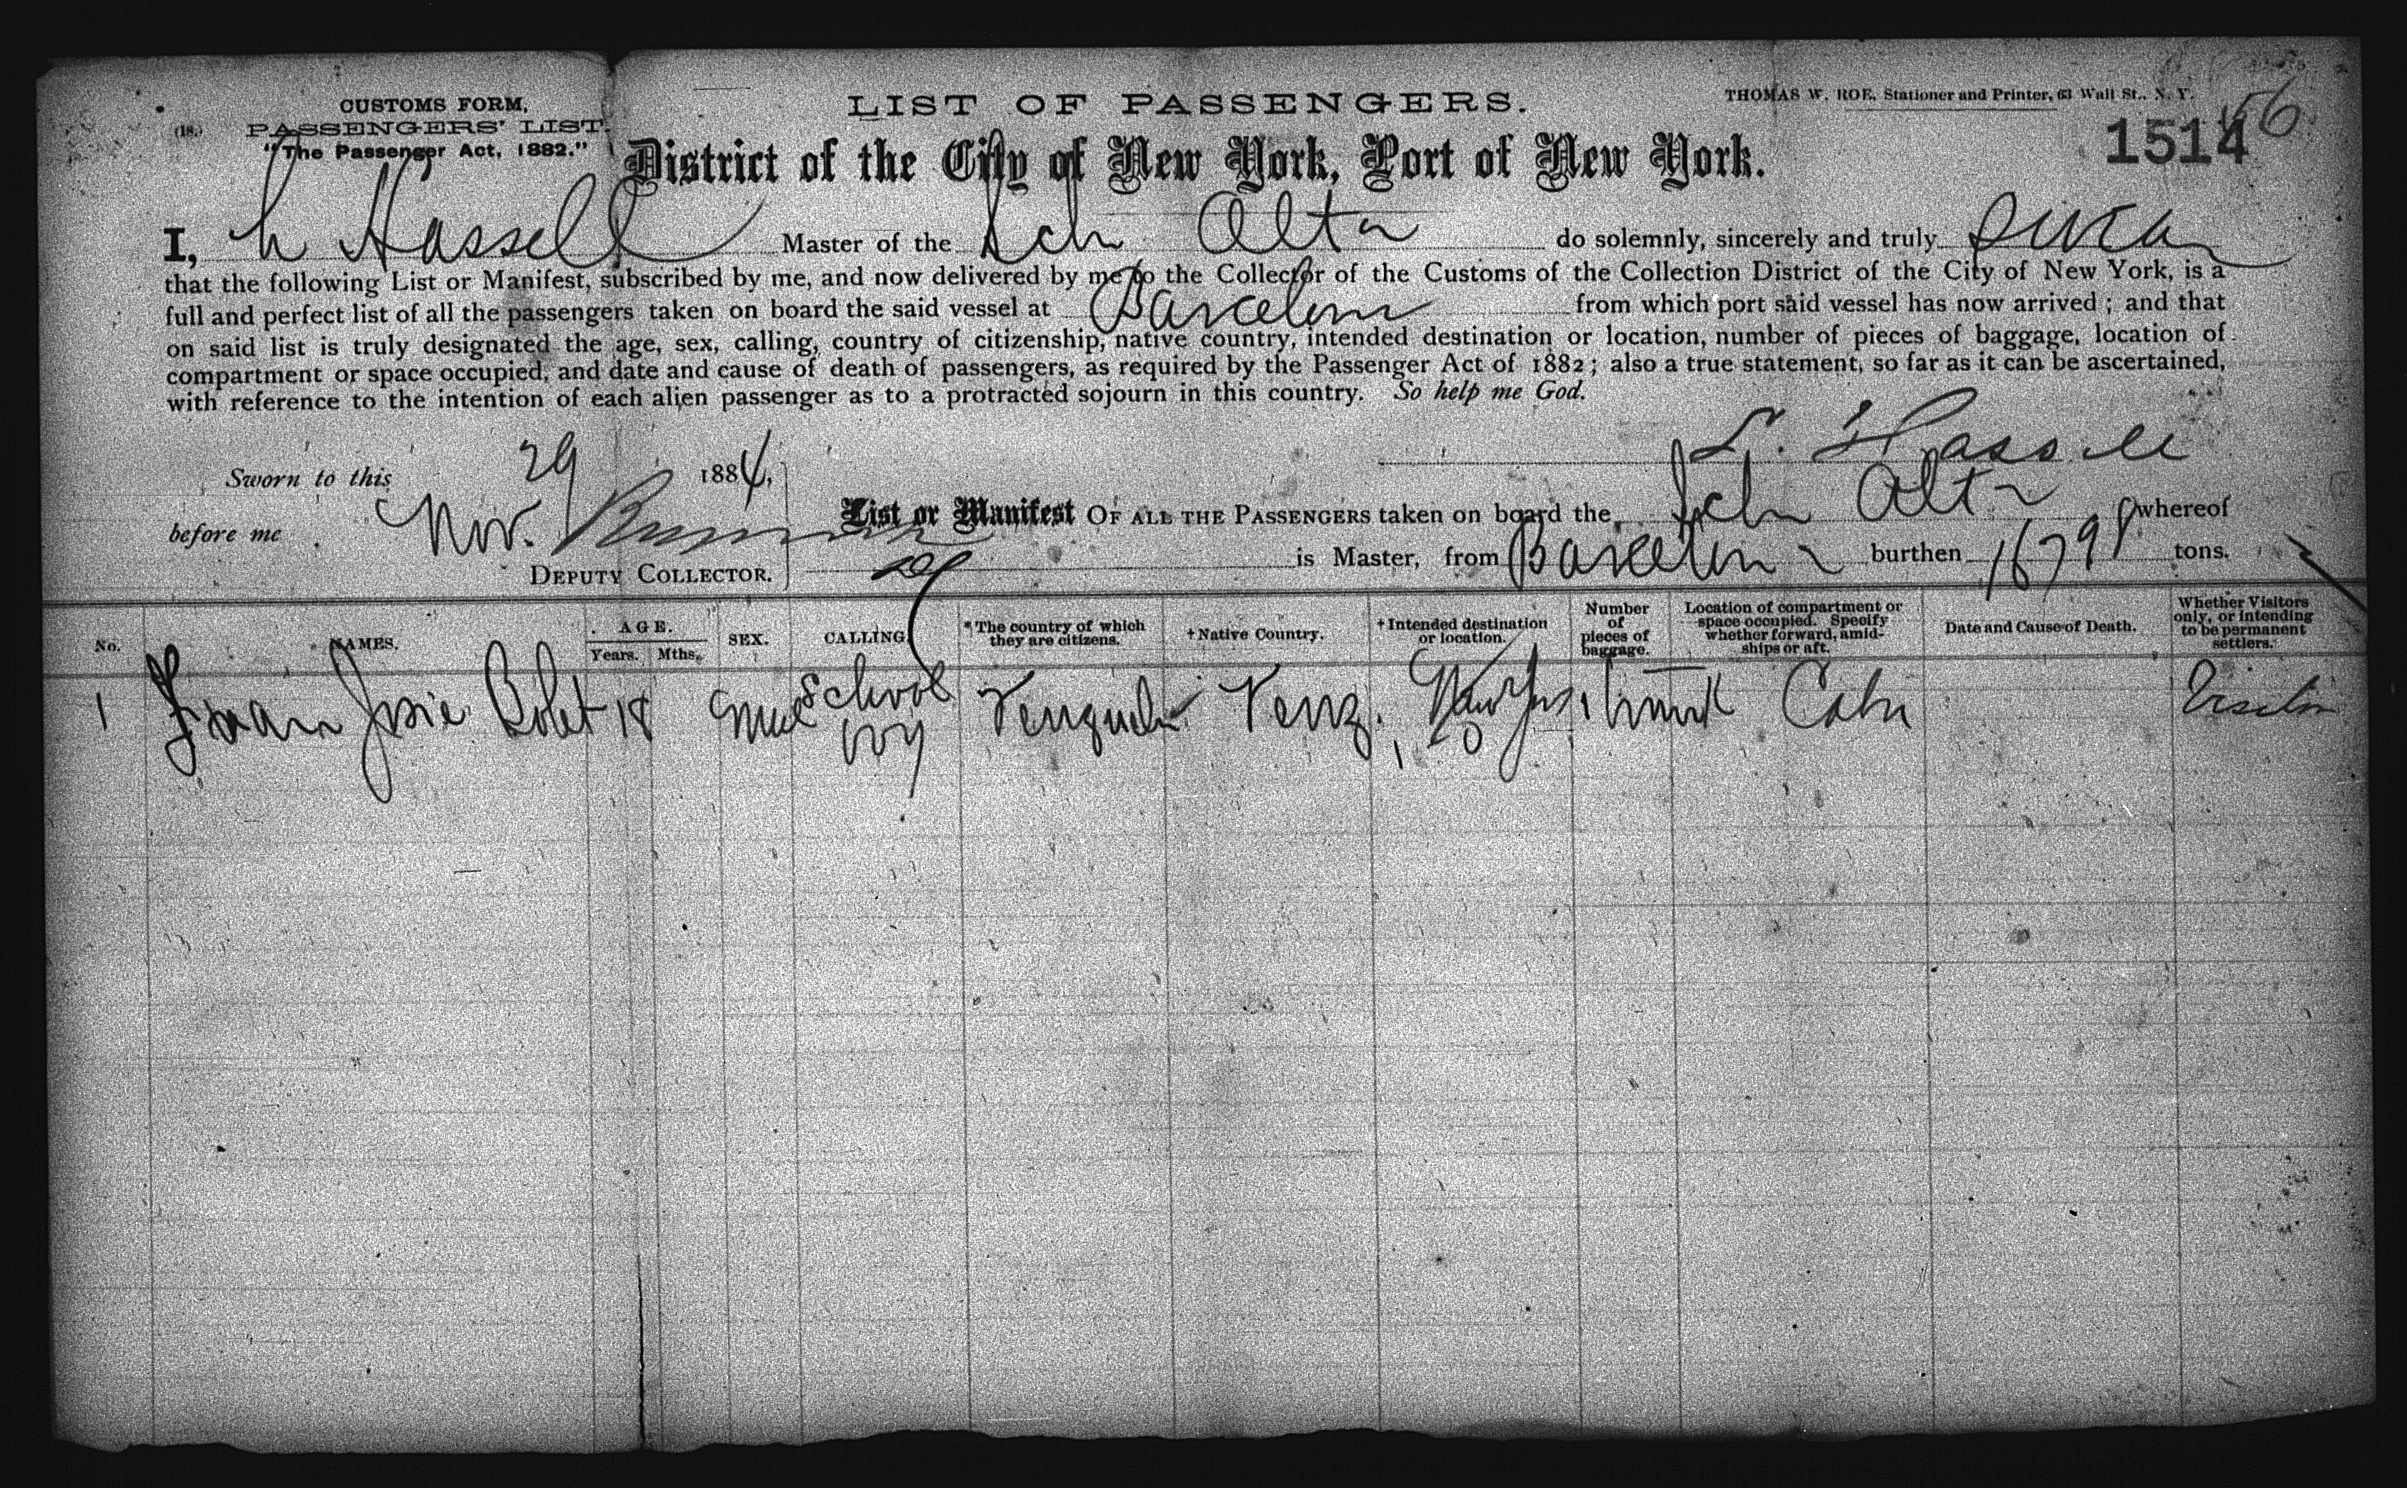 CUSTOMS FORM.
(18.) PASSENGERS' LIST.
"The Passenger Act, 1882."
LIST OF PASSENGERS.
THOMAS W. ROE, Stationer and Printer, 63 Wall St., N. Y.
56
1514
District of the City of New York, Port of New York.
I, L Hassell Master of the Sch Alta do solemnly, sincerely and truly swear
that the following List or Manifest, subscribed by me, and now delivered by me to the Collector of the Customs of the Collection District of the City of New York, is a
full and perfect list of all the passengers taken on board the said vessel at Barcelona from which port said vessel has now arrived; and that
on said list is truly designated the age, sex, calling, country of citizenship, native country, intended destination or location, number of pieces of baggage, location of
compartment or space occupied, and date and cause of death of passengers, as required by the Passenger Act of 1882; also a true statement, so far as it can be ascertained,
with reference to the intention of each alien passenger as to a protracted sojourn in this country. So help me God.
L. Hassell
Sworn to this 29 1884,
before me Nov.
DEPUTY COLLECTOR.
List or Manifest OF ALL THE PASSENGERS taken on board the Sch Alta whereof
is Master, from Barcelona burthen 167 98 tons.
No. NAMES. AGE. Years. Mths. SEX. CALLING. *The country of which they are citizens. †Native Country. †Intended destination or location. Number of pieces of baggage. Location of compartment or space occupied. Specify whether forward, amidships or aft. Date and Cause of Death. Whether Visitors only, or intending to be permanent settlers.
1 Juan Josie Bolet 18 Male School Venzuela Venz. New York 1 trunk Cabin Visitor
boy